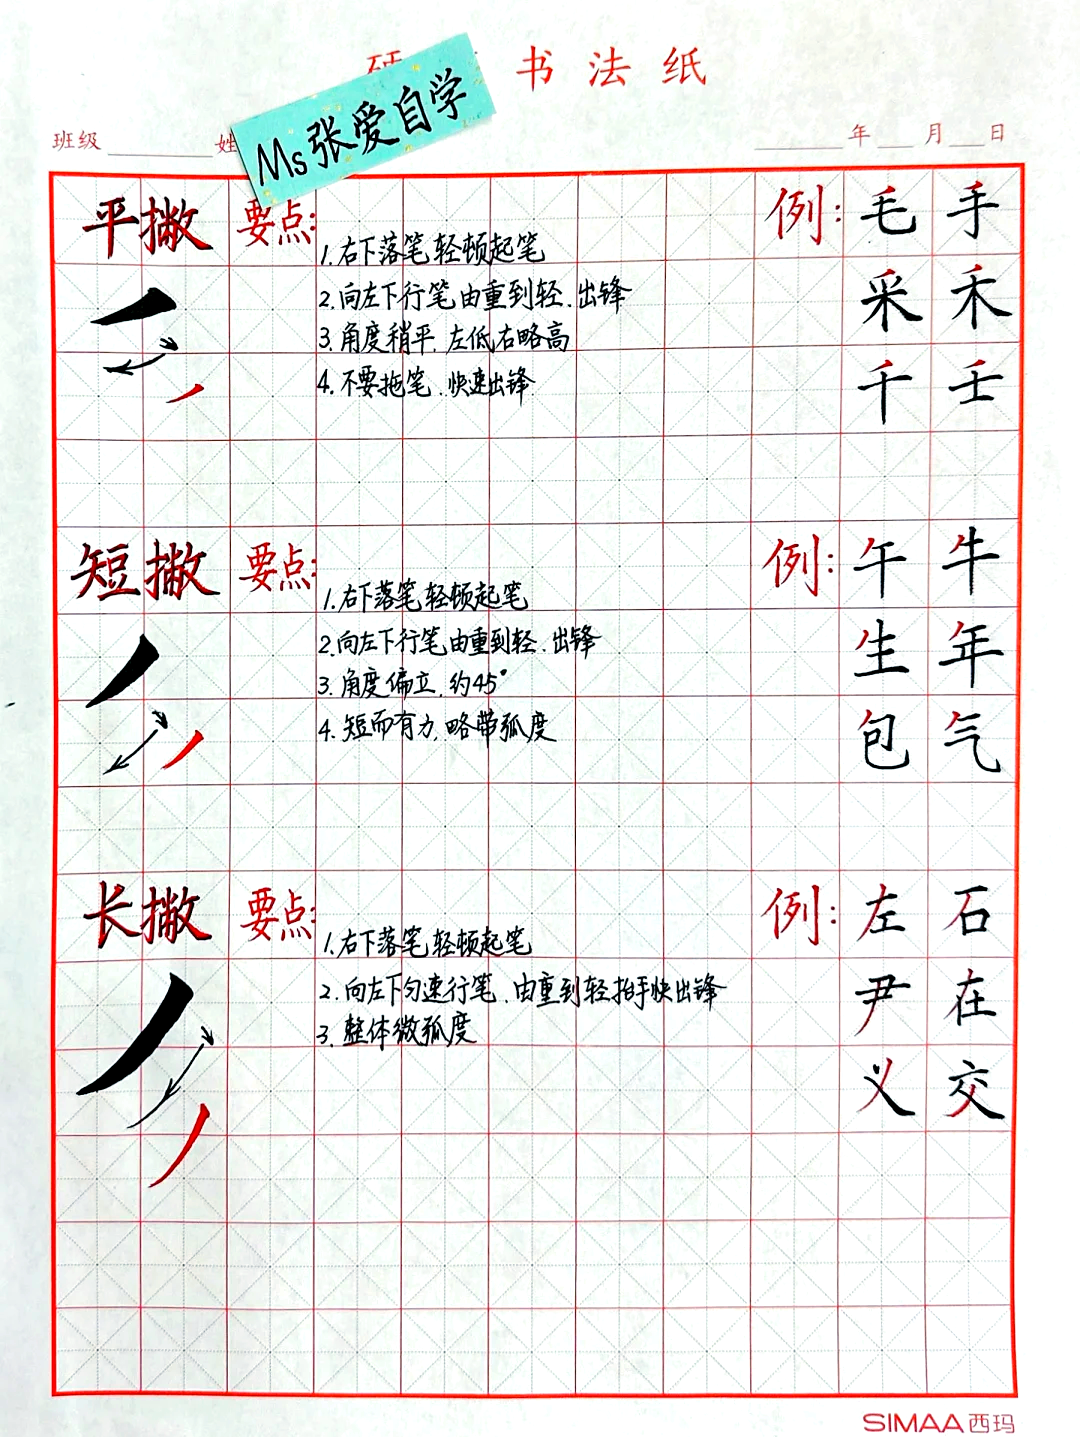 书法纸
Ms张爱自学
班级 姓 年 月 日
平撇 要点: 例: 毛 手
1.右下落笔轻顿起笔
2.向左下行笔由重到轻.出锋 采 禾
3.角度稍平.左低右略高
4.不要拖笔.快速出锋 千 壬
短撇 要点: 例: 午 牛
1.右下落笔轻顿起笔
2.向左下行笔由重到轻.出锋 生 年
3.角度偏立.约45°
4.短而有力.略带弧度 包 气
长撇 要点: 例: 左 石
1.右下落笔轻顿起笔
2.向左下匀速行笔.由重到轻抬手快出锋 尹 在
3.整体微弧度
义 交
SIMAA西玛